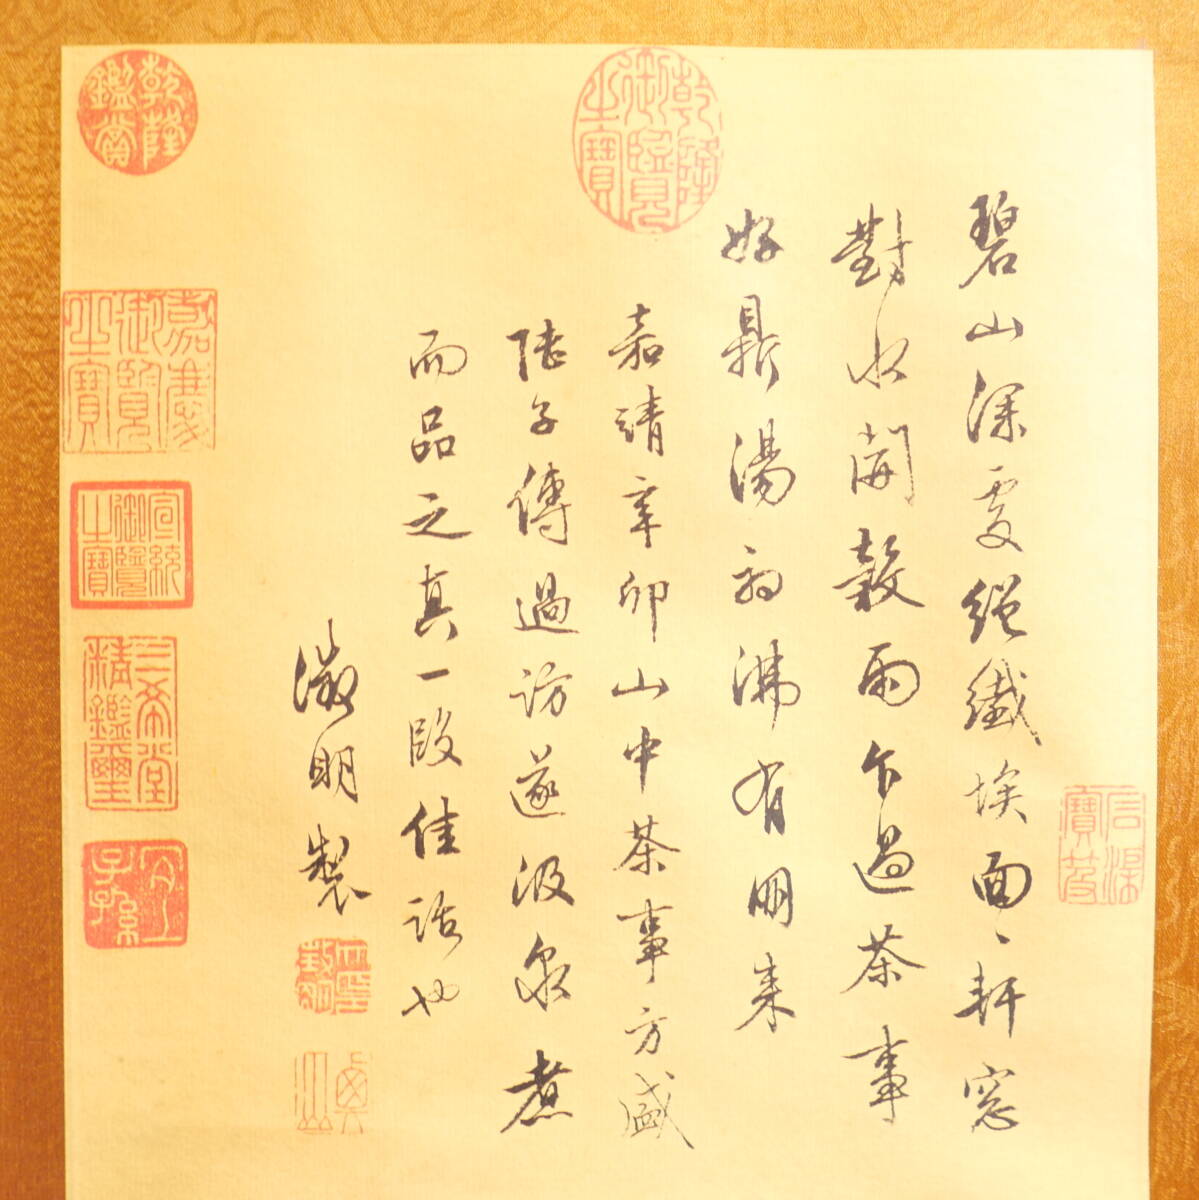 碧山深處絕纖埃面〻軒窓
對水開穀雨乍過茶事
好鼎湯初沸有朋来
嘉靖辛卯山中茶事方盛
陸子傅過訪遂汲泉煮
而品之真一段佳話也
徵明製
乾隆御覽之寶
乾隆鑑賞
嘉慶御覽之寶
宣統御覽之寶
三希堂精鑑璽
宜子孫